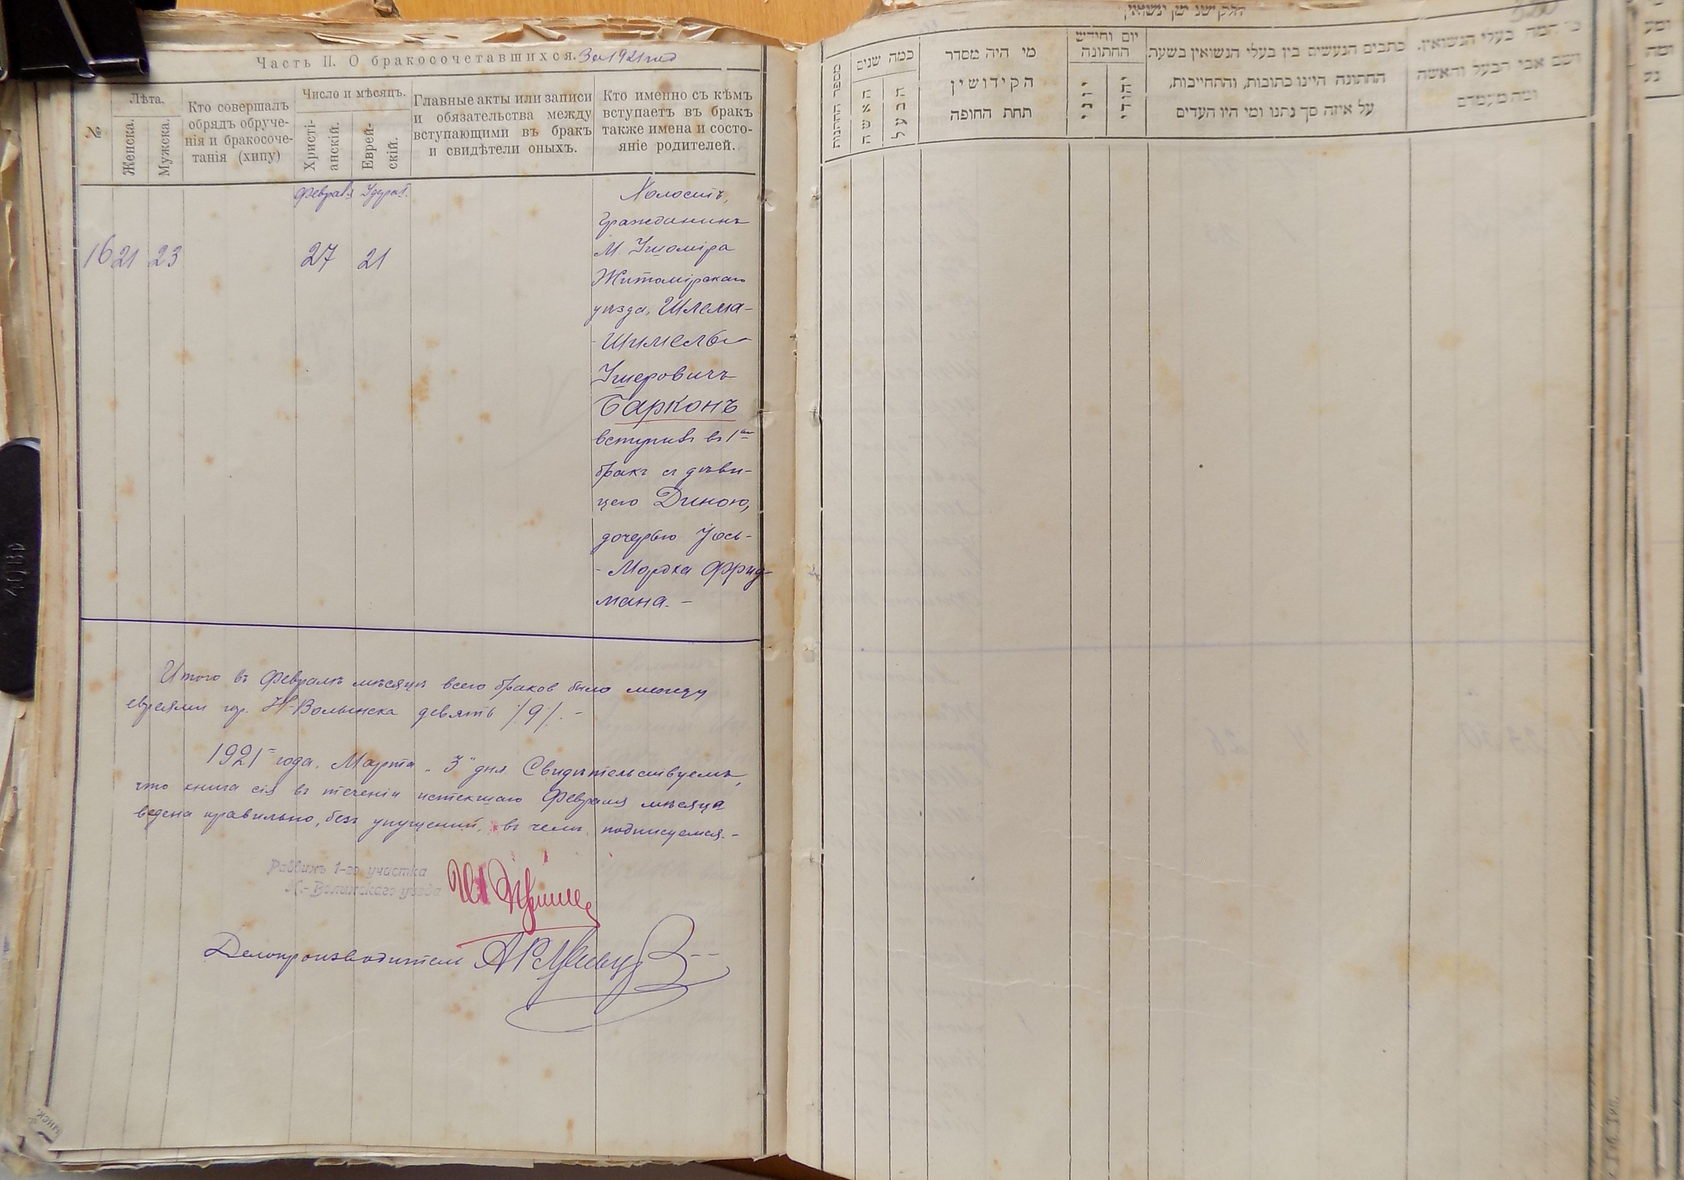 Часть II. О бракосочетавшихся. За 1921 год
№
Лѣта.
Женска.
Мужска.
Кто совершалъ
обрядъ обруче-
нія и бракосоче-
танія (хипу)
Число и мѣсяцъ.
Христі-
анскій.
Еврей-
скій.
Главные акты или записи
и обязательства между
вступающими въ бракъ
и свидѣтели оныхъ.
Кто именно съ кѣмъ
вступаетъ въ бракъ
также имена и состо-
яніе родителей.
16 21 23
27 21
Холостъ,
гражданинъ
М
Житомірскаго
уѣзда, Шлема-
Шимель
Ушеровичъ
Барконъ
вступилъ въ 1ый
бракъ съ дѣви-
цею Диною,
дочерью Усь-
-Мордха Фрид-
мана. -
Итого въ Февралѣ мѣсяцѣ всего браков было между
евреями гор. Н-Волынска девять /9/. -
1921 года, Марта "3" дня Свидѣтельствуемъ,
что книга сія въ теченіи истекшаго Февраля мѣсяца
ведена правильно, безъ упущеній, въ чемъ подписуемся. -
Раввинъ 1-го участка
Н.-Волынскаго уѣзда
Делопроизводитель
חלק שני מן נשואין
מספר החתונות
כמה שנים
האשה
הבעל
מי היה מסדר
הקידושין
תחת החופה
יום וחידש
החתונה
יוני
יהודי
כתבים הנעשים בין בעלי הנשואין בשעת
החתונה היינו כתובות, והתחייבות,
על איזה סך נתנו ומי היו העדים
מי המה בעלי הנשואין.
ושם אבי הבעל והאשה
ומה מעמדם